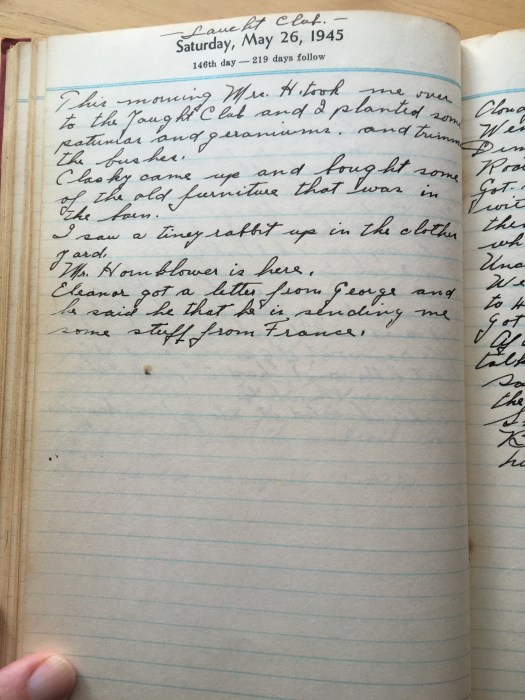 - Yaught Club. -
Saturday, May 26, 1945
146th day — 219 days follow
This morning Mrs. H. took me over
to the Yaught Club and I planted some
petunias and geraniums. and trimm
the bushes.
Clasky came up and bought some
of the old furniture that was in
the barn.
I saw a tiney rabbit up in the clothes
yard.
Mr. Hornblower is here.
Eleanor got a letter from George and
he said he that he is sending me
some stuff from France.
Cloud
We
Dim
Roo
Got
wit
the
wh
Unc
We
to H
Got
Af
talk
so
the
S
K
ho